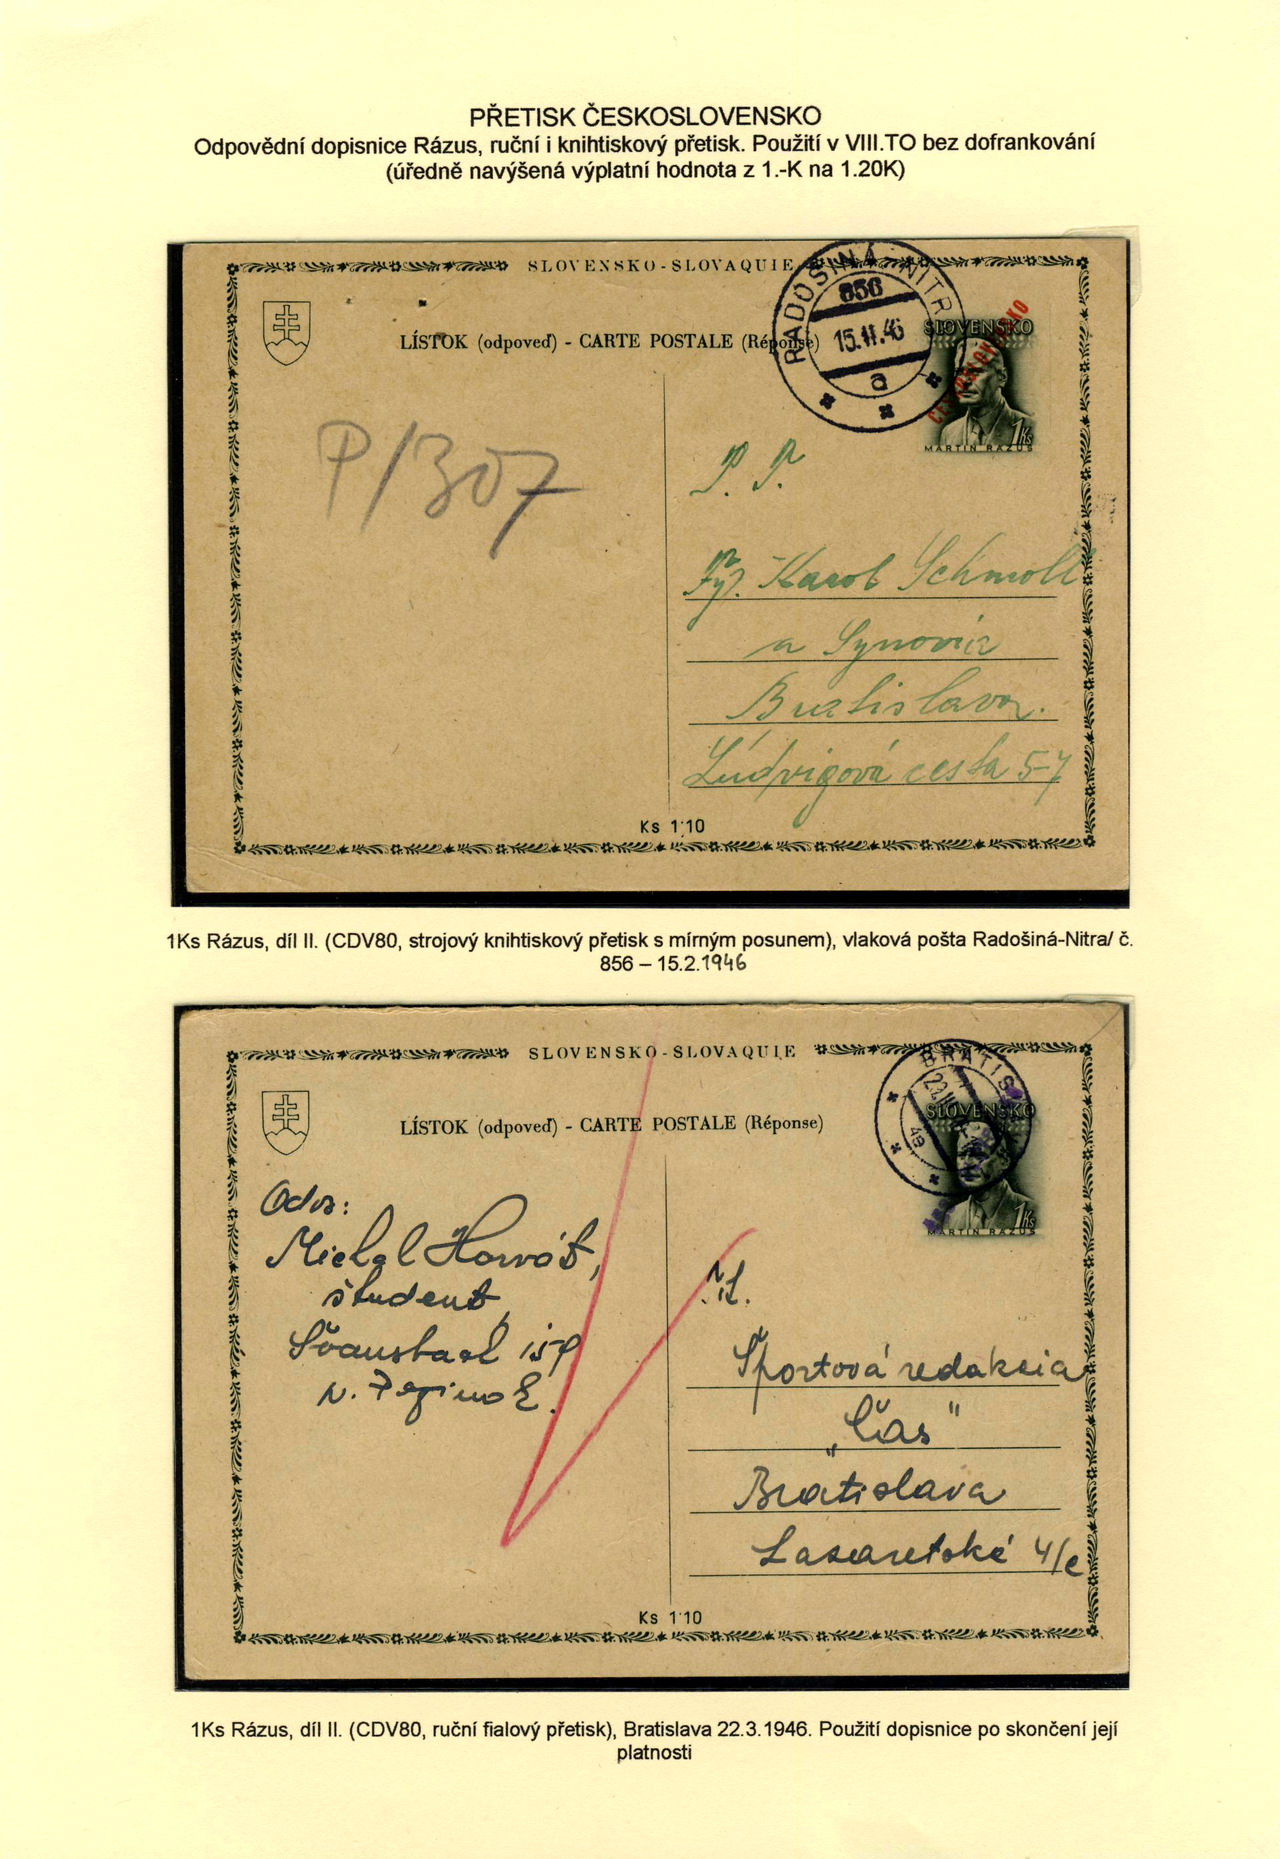 PŘETISK ČESKOSLOVENSKO
Odpovědní dopisnice Rázus, ruční i knihtiskový přetisk. Použití v VIII.TO bez dofrankování
(úředně navýšená výplatní hodnota z 1.-K na 1.20K)
SLOVENSKO-SLOVAQUIE
RADOŠINÁ-NITRA
856
15.II.46
a
LÍSTOK (odpoveď) - CARTE POSTALE (Réponse)
SLOVENSKO
ČESKOSLOVENSKO
1Ks
MARTIN RÁZUS
P/307
P. T.
Karol Schmoll
a Synovia
Bratislava.
Ludvigová cesta 5-7
Ks 1'10
1Ks Rázus, díl II. (CDV80, strojový knihtiskový přetisk s mírným posunem), vlaková pošta Radošiná-Nitra/ č.
856 – 15.2.1946
SLOVENSKO-SLOVAQUIE
BRATISL
22.III
49
LÍSTOK (odpoveď) - CARTE POSTALE (Réponse)
SLOVENSKO
1Ks
MARTIN RÁZUS
Odos:
Michal Horvát,
študent
157
Športová redakcia
„Čas"
Bratislava
Lasaretská 4/c
Ks 1'10
1Ks Rázus, díl II. (CDV80, ruční fialový přetisk), Bratislava 22.3.1946. Použití dopisnice po skončení její
platnosti